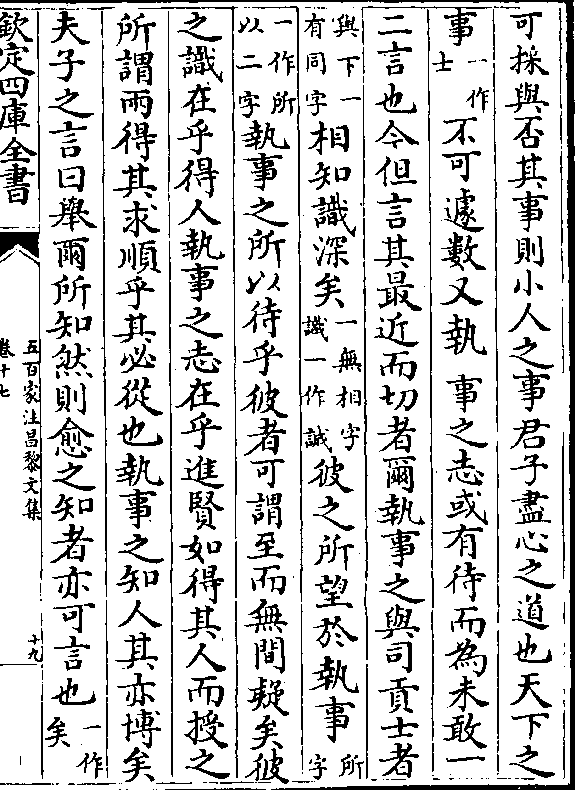 可採與否其事則小人之事君子盡心之道也天下之
事一作士不可遽數又執事之志或有待而為未敢一
二言也今但言其最近而切者爾執事之與司貢士者
與下一有同字相知識深矣一無相字識一作誠彼之所望於執事所字
一作所以二字執事之所以待乎彼者可謂至而無間疑矣彼
之識在乎得人執事之志在乎進賢如得其人而授之
所謂兩得其求順乎其必從也執事之知人其亦博矣
夫子之言曰舉爾所知然則愈之知者亦可言也一作矣
欽定四庫全書
五百家注昌黎文集
卷十七
十九